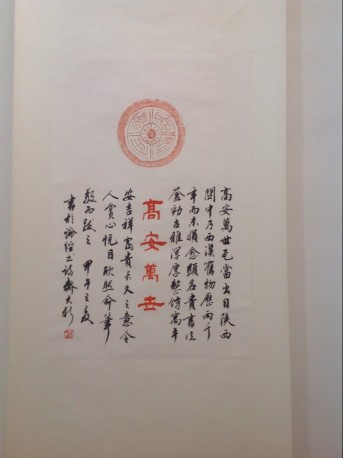 高安萬世
高安萬世瓦當出自陝西
関中乃西漢舊物歷兩千
年而未損愈顯名貴書法
蒼勁古雅深厚整飭寓平
安吉祥富貴長久之意令
人賞心悦目欣然命筆
而跋之 甲午之夏
書於